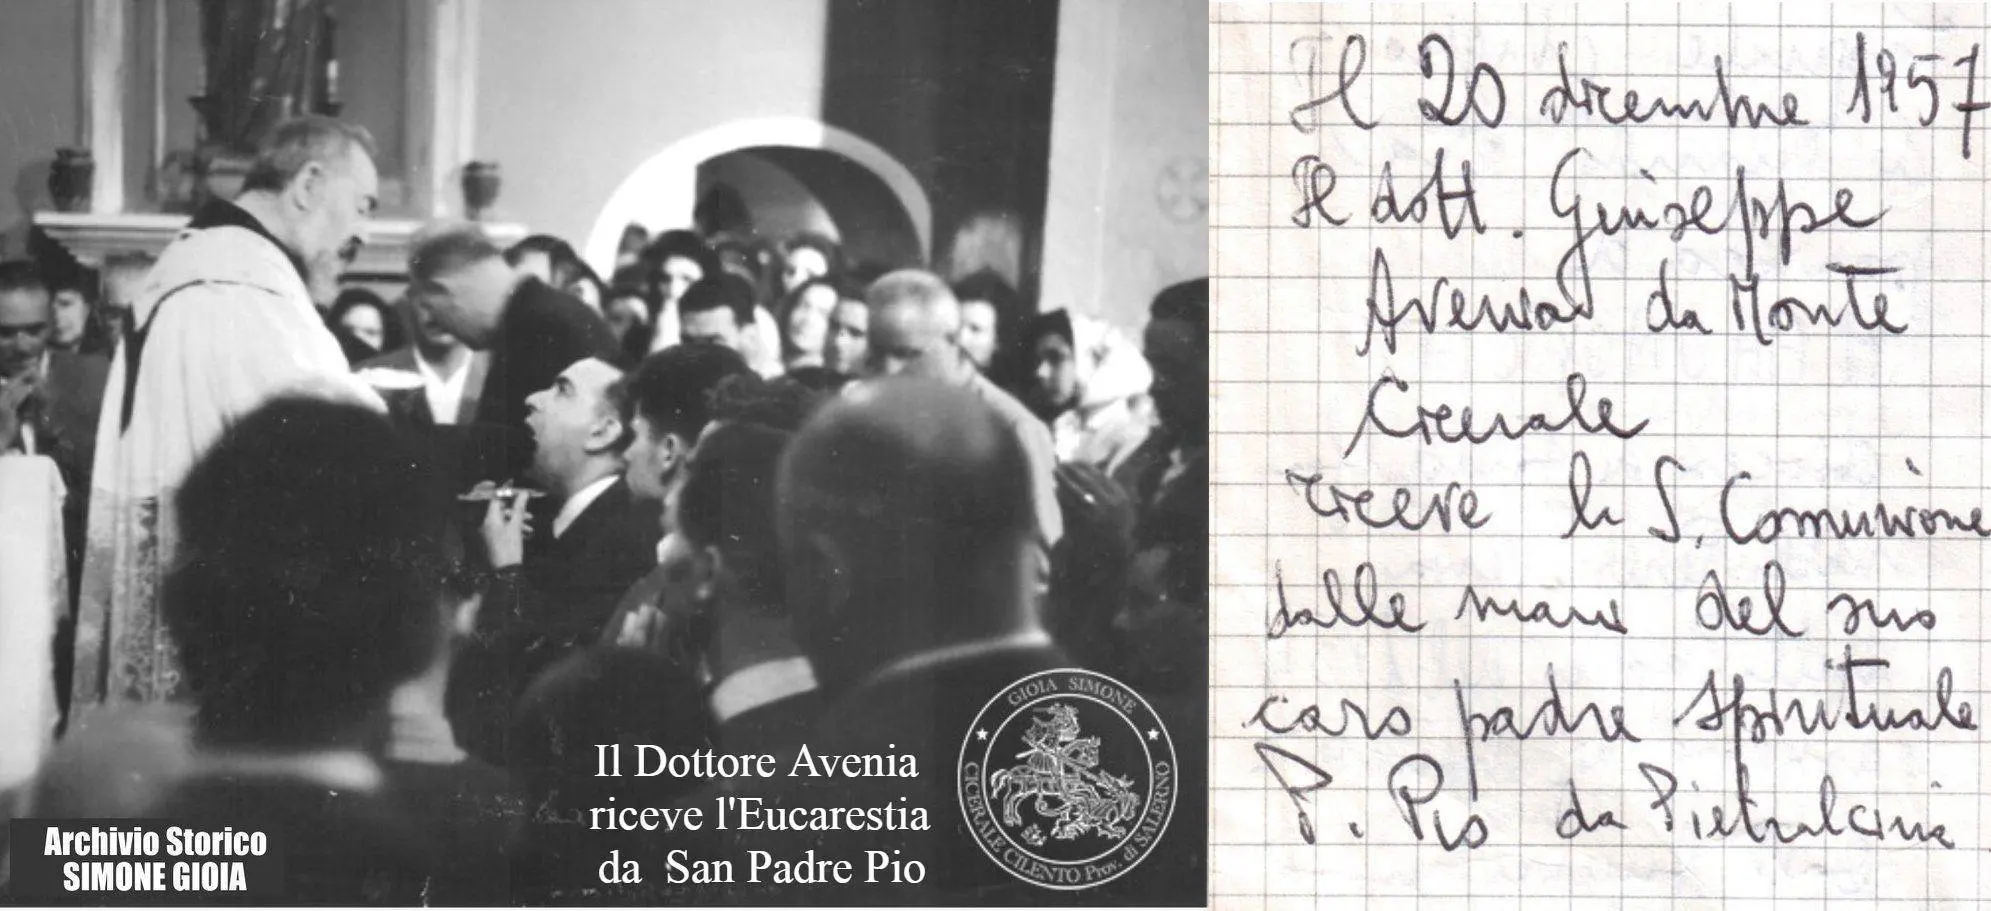 Il Dottore Avenia
riceve l'Eucarestia
da San Padre Pio
Archivio Storico
SIMONE GIOIA
GIOIA SIMONE
CICERALE CILENTO Prov. di SALERNO
Il 20 dicembre 1957
Il dott. Giuseppe
Avenia da Monte
Cicerale
riceve la S. Comunione
dalle mani del suo
caro padre spirituale
P. Pio da Pietralcina